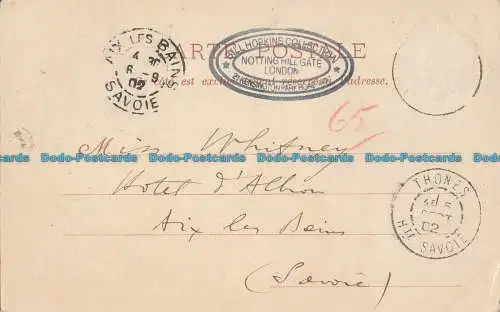 CARTE POSTALE
AIX LES BAINS
6
02
SAVOIE
WILL HOPKINS COLLECTION
NOTTING HILL GATE
LONDON
est exclusivement réservé à l'adresse.
65
Dodo-Postcards Dodo-Postcards Dodo-Postcards Dodo-Postcards Dodo-Postcards
Miss Whitney
Hotel d'Albion
Aix les Bains
(Savoie)
THONES
02
HTE SAVOIE